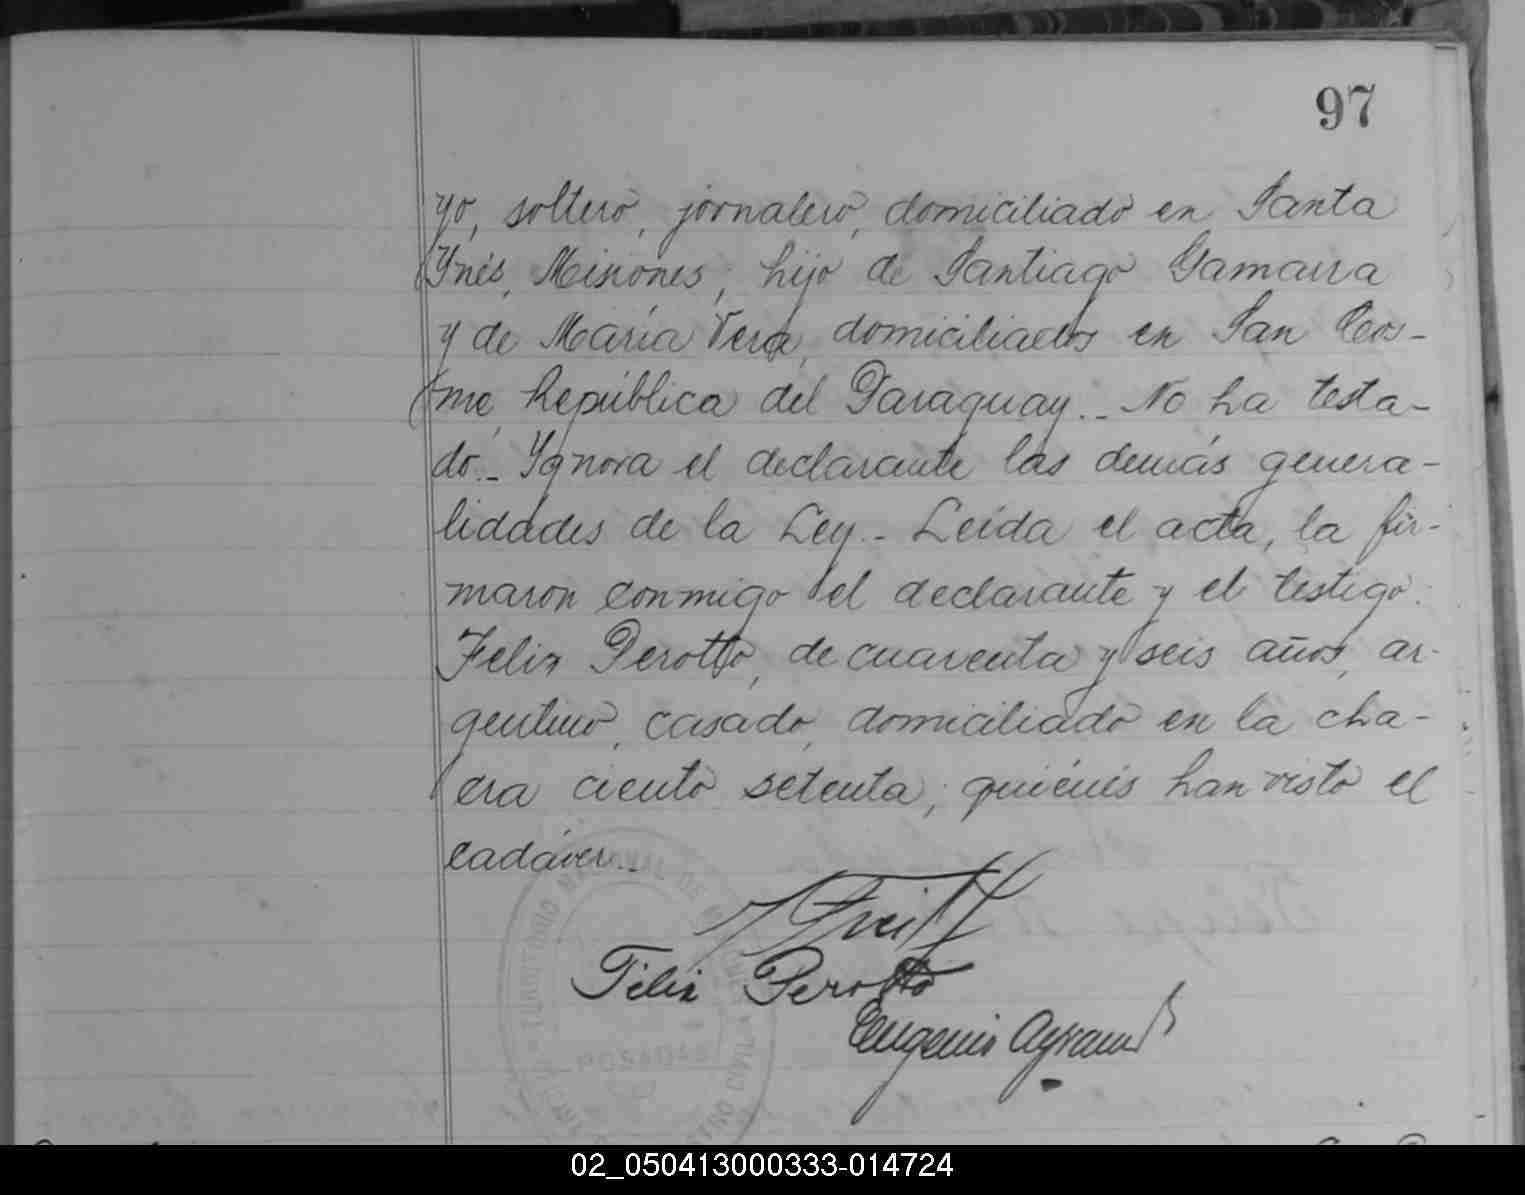 97
yo, soltero, jornalero, domiciliado en Santa
Ynés, Misiones, hijo de Santiago Gamarra
y de María Vera, domiciliados en San Cos-
me, República del Paraguay._ No ha testa-
do._ Ygnora el declarante las demás genera-
lidades de la Ley._ Leída el acta, la fir-
maron conmigo el declarante y el testigo
Felix Perotto, de cuarenta y seis años, ar-
gentino, casado, domiciliado en la cha-
cra ciento setenta, quiénes han visto el
cadáver._
Felix Perotto
Eugenio
TERRITORIO NACIONAL DE
POSADAS
CIVIL
02_050413000333-014724